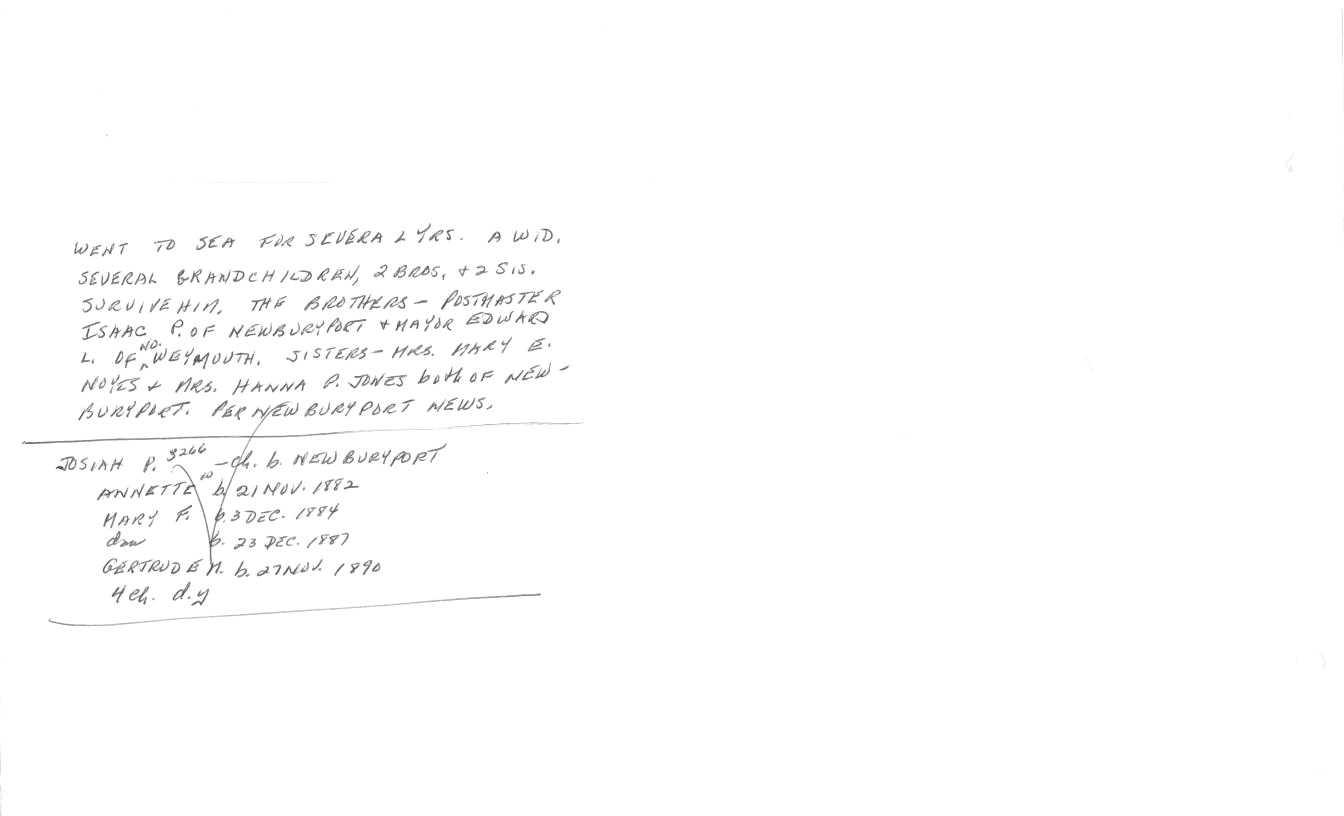 WENT TO SEA FOR SEVERAL YRS. A WID,
SEVERAL GRANDCHILDREN, 2 BROS, + 2 SIS.
SURVIVE HIM. THE BROTHERS – POSTMASTER
ISAAC P. OF NEWBURYPORT + MAYOR EDWARD
L. OF NO. WEYMOUTH. SISTERS – MRS. MARY E.
NOYES + MRS. HANNA P. JONES both OF NEW-
BURYPORT. PER NEWBURYPORT NEWS.
JOSIAH P. 3266 – Ch. b. NEWBURYPORT
ANNETTE b 21 NOV. 1882
MARY F. b. 3 DEC. 1884
dau b. 23 DEC. 1887
GERTRUDE M. b. 27 NOV. 1890
4 ch. d.y